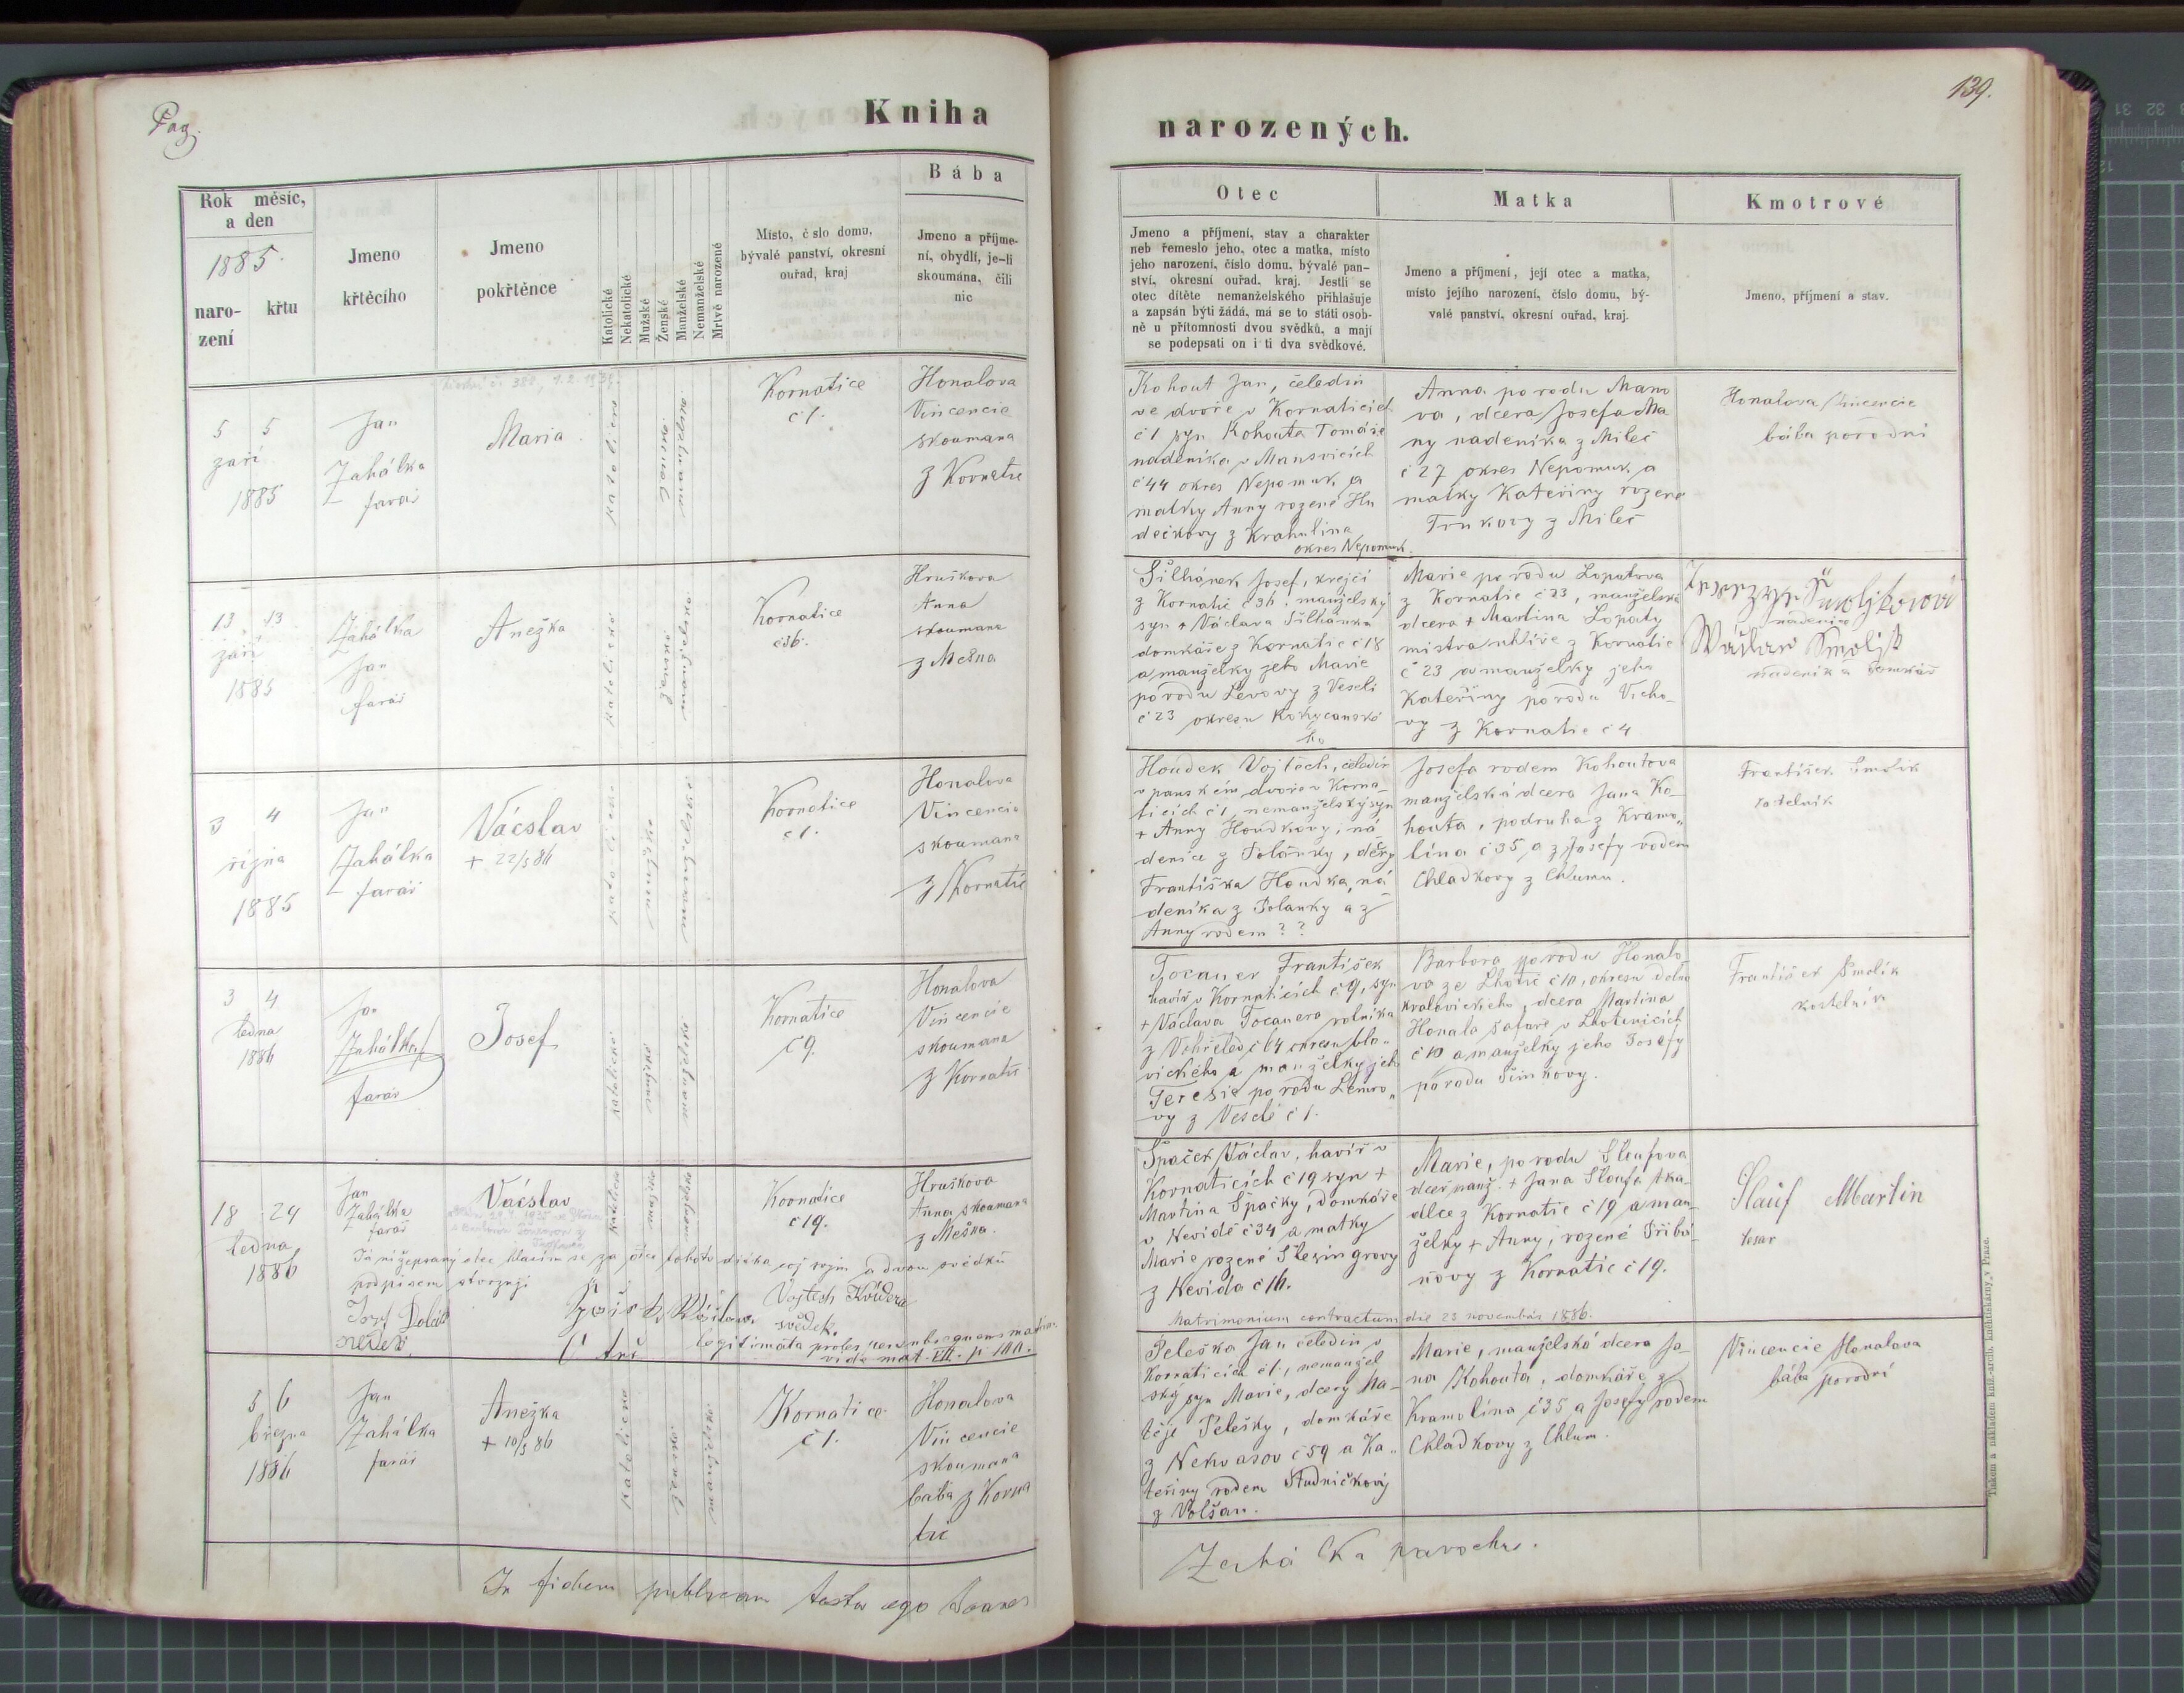 Pag.
Kniha
Rok měsíc,
a den
1885.
naro-
zení
křtu
Jmeno
křtěcího
Jmeno
pokřtěnce
Katolické
Nekatolické
Mužské
Ženské
Manželské
Nemanželské
Mrtvě narozené
Místo, č slo domu,
bývalé panství, okresní
ouřad, kraj
Bába
Jmeno a příjme-
ní, obydlí, je-li
skoumána, čili
nic
5 5
září
1885
Jan
Zahálka
farář
Maria
katolické
ženské
manželské
Kornatice
č 1.
Honalova
Vincencie
skoumana
z Kornatic
13 13
září
1885
Zahálka
Jan
farář
Anežka
katolické
ženské
manželské
Kornatice
č 36.
Hruškova
Anna
skoumana
z Mešna
3 4
října
1885
Jan
Zahálka
farář
Václav
+ 22/5 86
katolické
mužské
manželské
Kornatice
č 1.
Honalova
Vincencie
skoumana
z Kornatic
3 4
ledna
1886
Jan
Zahálka
farář
Josef
katolické
mužské
manželské
Kornatice
č 9.
Honalova
Vincencie
skoumana
z Kornatic
18 24
ledna
1886
Jan
Zahálka
farář
Václav
katolické
mužské
Kornatice
č 19.
Hruškova
Anna skoumana
z Mešna.
Já nížepsaný otec hlásím se za otce tohoto dítka a dvou svědků
podpisem stvrzuji
Vojtech
svědek.
Josef
svědek
Václav
legitimata proles
vide mat. VII. p.
3 6
března
1886
Jan
Zahálka
farář
Anežka
+ 10/3 86
katolické
ženské
manželské
Kornatice
č 1.
Honalova
Vincencie
skoumana
bába z Korna
tic
In fidem publicam testor ego Joanes
139.
narozených.
Otec
Jmeno a příjmení, stav a charakter
neb řemeslo jeho, otec a matka, místo
jeho narození, číslo domu, bývalé pan-
ství, okresní ouřad, kraj. Jestli se
otec dítěte nemanželského přihlašuje
a zapsán býti žádá, má se to státi osob-
ně u přítomnosti dvou svědků, a mají
se podepsati on i ti dva svědkové.
Matka
Jmeno a příjmení, její otec a matka,
místo jejího narození, číslo domu, bý-
valé panství, okresní ouřad, kraj.
Kmotrové
Jmeno, příjmení a stav.
Kohout Jan, čeledín
ve dvoře v Kornaticích
č 1 syn Kohouta Tomáše
nadeníka v Mansvicích
č 44 okres Nepomuk a
matky Anny rozené Hu
dečkovy z Krahulína
okres Nepomuk.
Anna porodu Mano
va, dcera Josefa Ma
ny nadeníka z Mileč
č 27 okres Nepomuk a
matky Kateřiny rozené
Trnkovy z Mileč
Honalova Vincencie
bába porodní
Šilhánek Josef, krejčí
z Kornatic č 36, manželský
syn + Václava Šilhánka
domkáře z Kornatic č 18
a manželky jeho Marie
porodu Levovy z Veselí
č 23 okresu Rokycanské
ho
Marie porodu Lopatova
z Kornatic č 23, manželská
dcera + Martina Lopaty
mistra uhlíře z Kornatic
č 23 a manželky jeho
Kateřiny porodu Vicho-
vy z Kornatic č 4
Smolíková
nadenice
Václav Smolík
nadeník a domkář
Houdek Vojtěch, čeledín
v panském dvoře v Korna-
ticích č 1, nemanželský syn
+ Anny Houdkovy, ná
denice z Polánky, dcery
Františka Houdka, ná
deníka z Polanky a z
Anny rodem ? ?
Josefa rodem Kohoutova
manželská dcera Jana Ko-
houta, podruha z Kramo-
lína č 35 a z Josefy rodem
Chladkovy z Chlumu.
František Smolík
kostelník
Tocauer František
havíř v Kornaticích č 9, syn
+ Václava Tocauera rolníka
z Vohřeled č 64 okresu blo-
vického a manželky jeho
Teresie porodu Lemro-
vy z Veselé č 1.
Barbora porodu Honalo
va ze Lhotic č 10, okresu Dolno
kralovického, dcera Martina
Honala šafáře v Lhotenicích
č 10 a manželky jeho Josefy
porodu Šimkovy.
František Smolík
kostelník
Špaček Václav, havíř v
Kornaticích č 19 syn +
Martina Špačky, domkáře
v Nevidě č 34 a matky
Marie rozené Šlesingrovy
z Nevida č 16.
Marie, porodu Sloufova
dcer manž. + Jana Sloufa tka-
dlce z Kornatic č 19 a man-
želky + Anny, rozené Přibá-
ňovy z Kornatic č 19.
Slauf Martin
tesar
Matrimonium contractum die 23 novembris 1886.
Peleška Jan čeledín v
Kornaticích č 1, nemanžel
ský syn Marie, dcery Ma-
těje Pelešky, domkáře
z Nekvasov č 59 a Ka-
teřiny rodem Studničkový
z Volšan.
Marie, manželská dcera Ja-
na Kohouta, domkáře z
Kramolína č 35 a Josefy rodem
Chladkovy z Chlum.
Vincencie Honalova
bába porodní
Zahálka parochus.
Tiskem a nákladem kníž.-arcib. knihtiskárny v Praze.